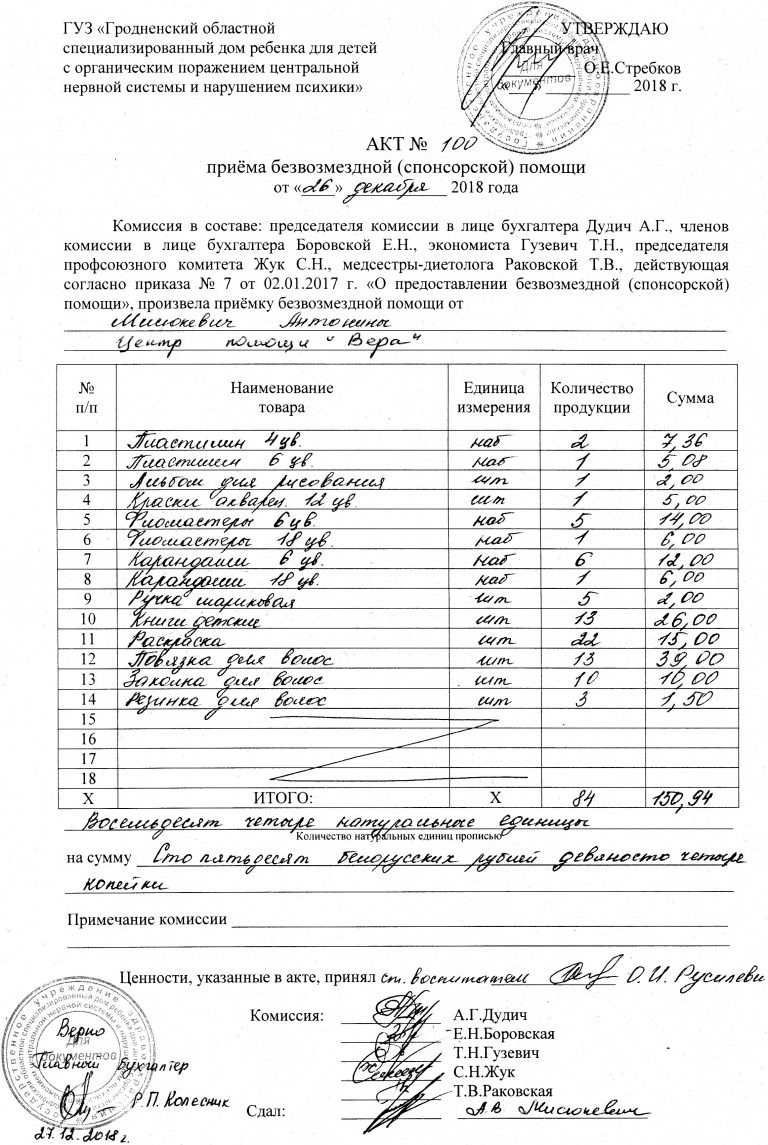 ГУЗ «Гродненский областной
специализированный дом ребенка для детей
с органическим поражением центральной
нервной системы и нарушением психики»
УТВЕРЖДАЮ
Главный врач
О.Е.Стребков
2018 г.
Для документов
АКТ № 100
приёма безвозмездной (спонсорской) помощи
от «26» декабря 2018 года
Комиссия в составе: председателя комиссии в лице бухгалтера Дудич А.Г., членов
комиссии в лице бухгалтера Боровской Е.Н., экономиста Гузевич Т.Н., председателя
профсоюзного комитета Жук С.Н., медсестры-диетолога Раковской Т.В., действующая
согласно приказа № 7 от 02.01.2017 г. «О предоставлении безвозмездной (спонсорской)
помощи», произвела приёмку безвозмездной помощи от
Мисюкевич Антонины
Центр помощи "Вера"
№ п/п Наименование товара Единица измерения Количество продукции Сумма
1 Пластилин 4 цв. наб 2 7,36
2 Пластилин 6 цв. наб 1 5,08
3 Альбом для рисования шт 1 2,00
4 Краски акварел. 12 цв. шт 1 5,00
5 Фломастеры 6 цв. наб 5 14,00
6 Фломастеры 18 цв. наб 1 6,00
7 Карандаши 6 цв. наб 6 12,00
8 Карандаши 18 цв. наб 1 6,00
9 Ручка шариковая шт 5 2,00
10 Книги детские шт 13 26,00
11 Раскраска шт 22 15,00
12 Повязка для волос шт 13 39,00
13 Заколка для волос шт 10 10,00
14 Резинка для волос шт 3 1,50
15
16
17
18
Х ИТОГО: Х 84 150,94
Восемьдесят четыре натуральные единицы
Количество натуральных единиц прописью
на сумму Сто пятьдесят белорусских рублей девяносто четыре
копейки
Примечание комиссии
Ценности, указанные в акте, принял ст. воспитателем О.И. Русилеви
Комиссия: А.Г.Дудич
Е.Н.Боровская
Т.Н.Гузевич
С.Н.Жук
Т.В.Раковская
Сдал: А.В. Мисюкевич
Верно
Для документов
Главный бухгалтер
Р.П. Колесник
27.12.2018г.